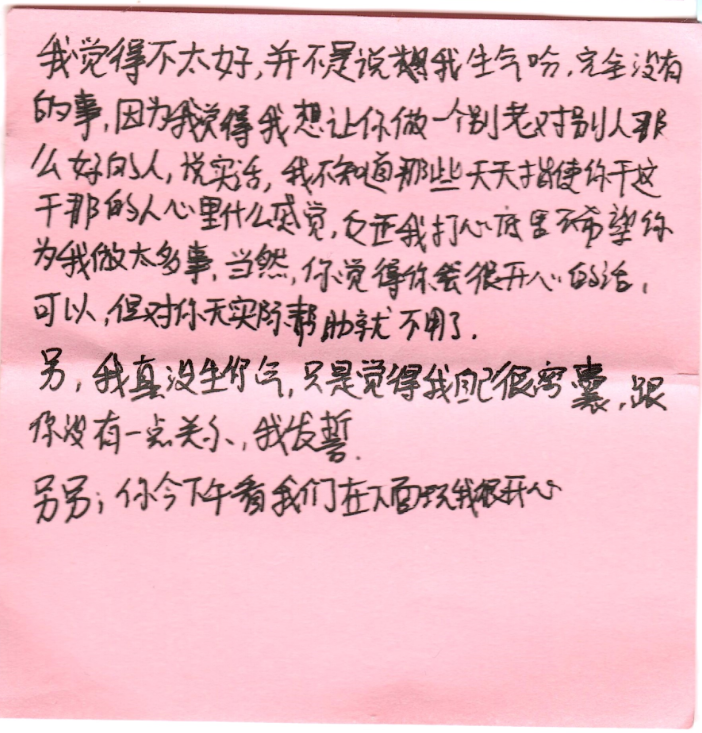 我觉得不太好,并不是说想我生气吩,完全没有
的事,因为我觉得我想让你做一个别老对别人那
么好的人,说实话,我不知道那些天天指使你干这
干那的人心里什么感觉,反正我打心底里不希望你
为我做太多事,当然,你觉得你会很开心的话,
可以,但对你无实际帮助就不用了.
另,我真没生你气,只是觉得我自己很窝囊,跟
你没有一点关系,我发誓.
另另;你今下午看我们在下面玩我很开心